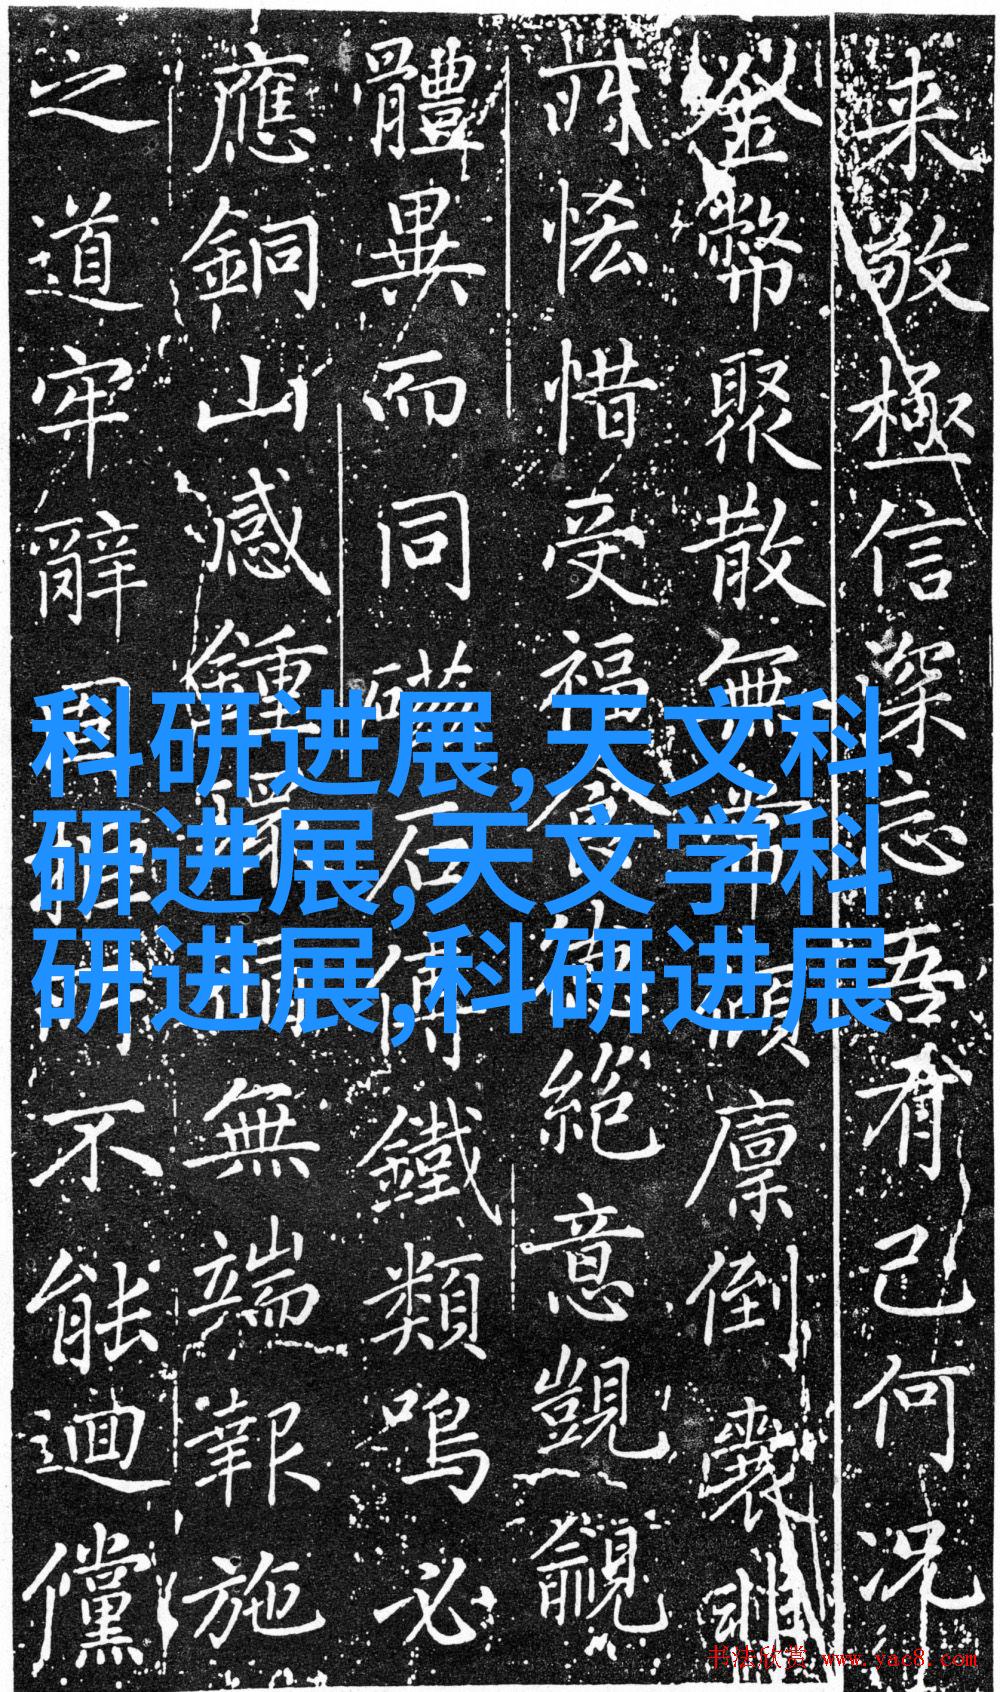 来敬極信深忘吾有己何况
幣聚散無常碩廪倒
惜受福德絶意覬覦
體異而同石傅鐵類鳴必
應銅山感鍾無端報施
之道牢辭固不能迴儻
科研进展,天文科
研进展,天文学科
研进展,科研进展
书法欣赏 www.yac8.com